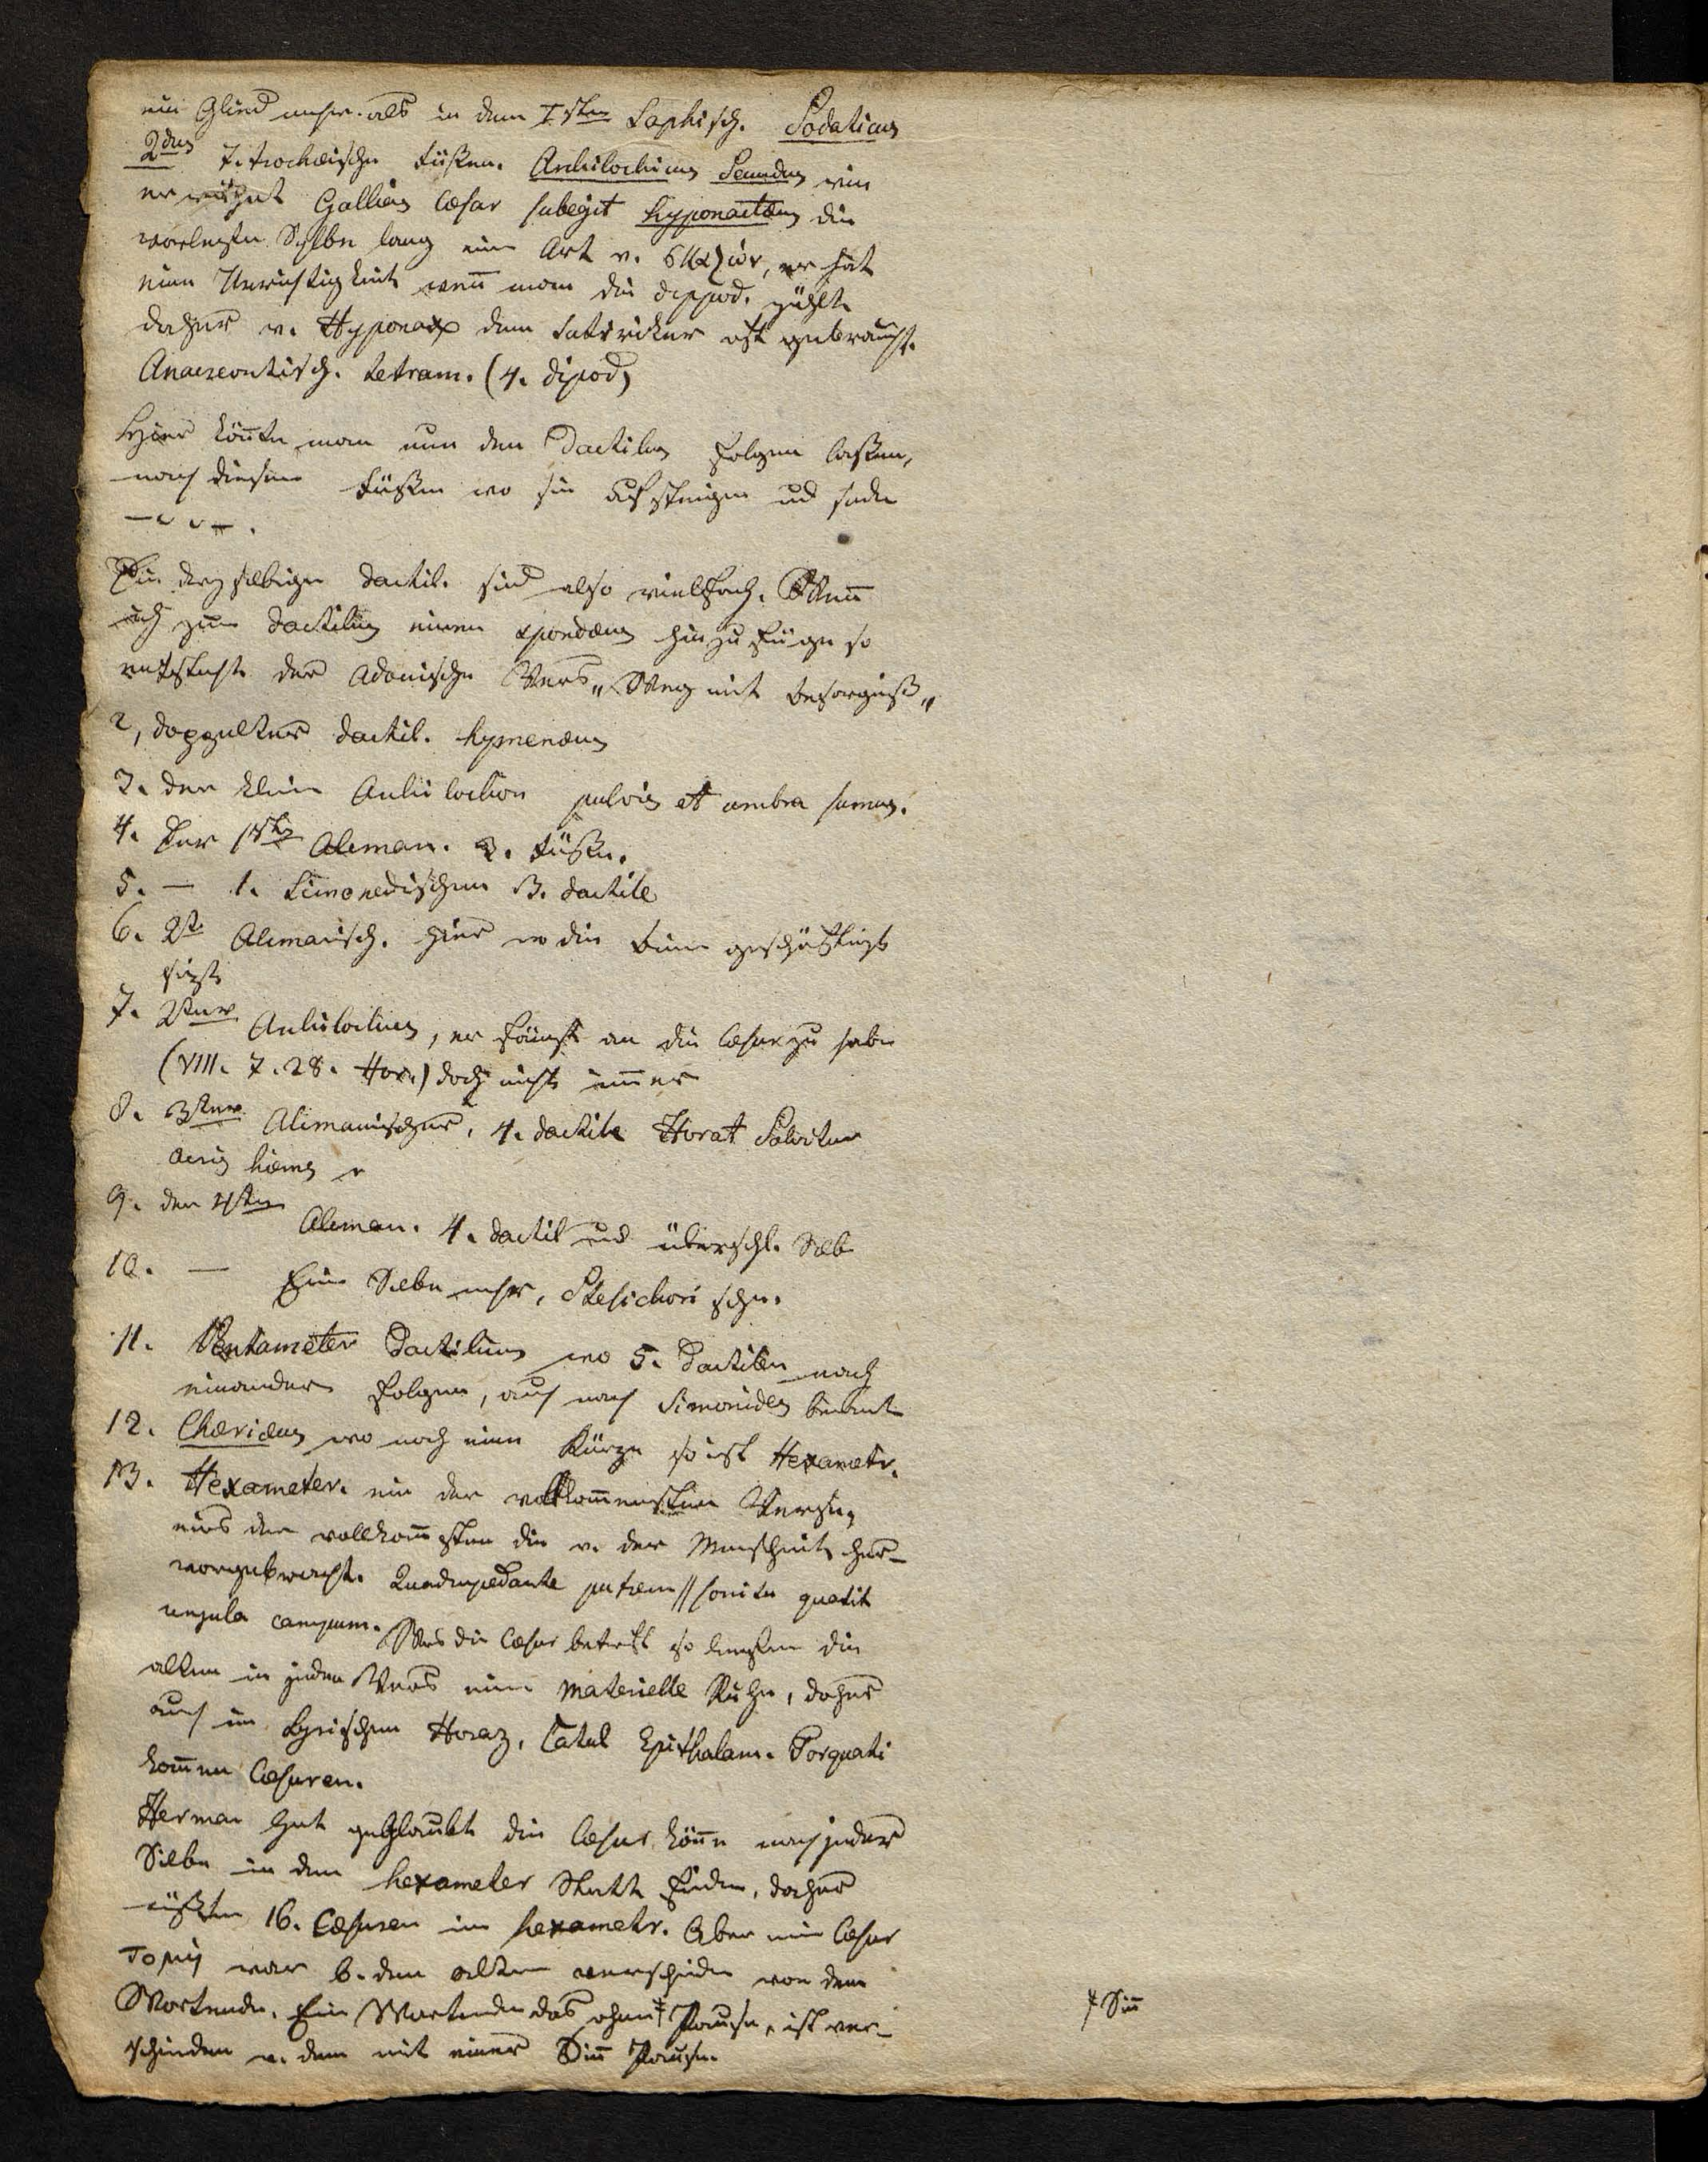 ein Glied mehr als in dem Isten Saphisch. Sodaticus
2dus 7. trochæische Füßen. Archilochius Secundus wie
er  Gallias Cæsar subegit hyponactæus die
vorletzte Sylbe lang eine Art v. σκαζων, er hat
eine Unrichtigkeit wen̄ man die dippod. zählt
daher v. Hyponax dem Satiricker oft gebraucht.
Anacreontisch. tetram. (4. dipod)
Hier kön̄te man nun den Dactilus folgen lassen,
nach diesem Füßen wo sie aufsteigen ud
– ᴗ ᴗ – .
Die  dactil. sind also vielfach. Wen̄
ich zum Dactilus einen spondæus hinzufüge so
entsteht der Adonische Vers „Weg mit besorgniß„
2, doppelter dactil. hymenæus
3. der kleine Archilochion pulvis et umbra sumus.
4. Der 1ste Alcman. 3. Füße.
5. – 1. Simonedischen 3. dactile
6. 2te Alcmanisch. Hier wo die Biene geschäftigt
sizt
7. 2ter Archilochius, er fängt an die Cæsur zu haben
(VIII. 7. 28. Hor.) doch nicht im̄er
8. 3ter Alcmanischer, 4. dactile Horat Solvitur
acris hiems r
9. der 4te
Alcman. 4. dactil und überschl. Silb
10. – Eine Silbe mehr, Stesichorische.
11. Pentameter Dactilicus wo 5. Dactilen nach
einander folgen, auch nach Simonides benant
12. Chærideus wo noch eine Kürze so ist Hexametr.
13. Hexameter. ein der vollkom̄ensten Verse,
eins der vollkom̄sten die v. der Menschheit her-
vorgebracht. Quadrupedante putrem // sonitu quatit
ungula campum. Was die Cæsur betrift so lassen die
alten in jedem Vers eine materielle Ruhe, daher
auch im Lyrischen Horaz, Catul Epithalam. Torquati
kom̄en Cæsuren.
Herman hat geglaubt die Cæsur kön̄e nach jeder
Silbe in dem hexameter Statt finden, daher
müßten 16. Cæsuren im hexametr. Aber eine Cæsur
τομη war b. den alten verschieden von dem
Wortende. Ein Wortende das ohne ‡ Pause, ist ver-
schieden v. dem mit einer Sin̄ Pause.
‡ Sin̄